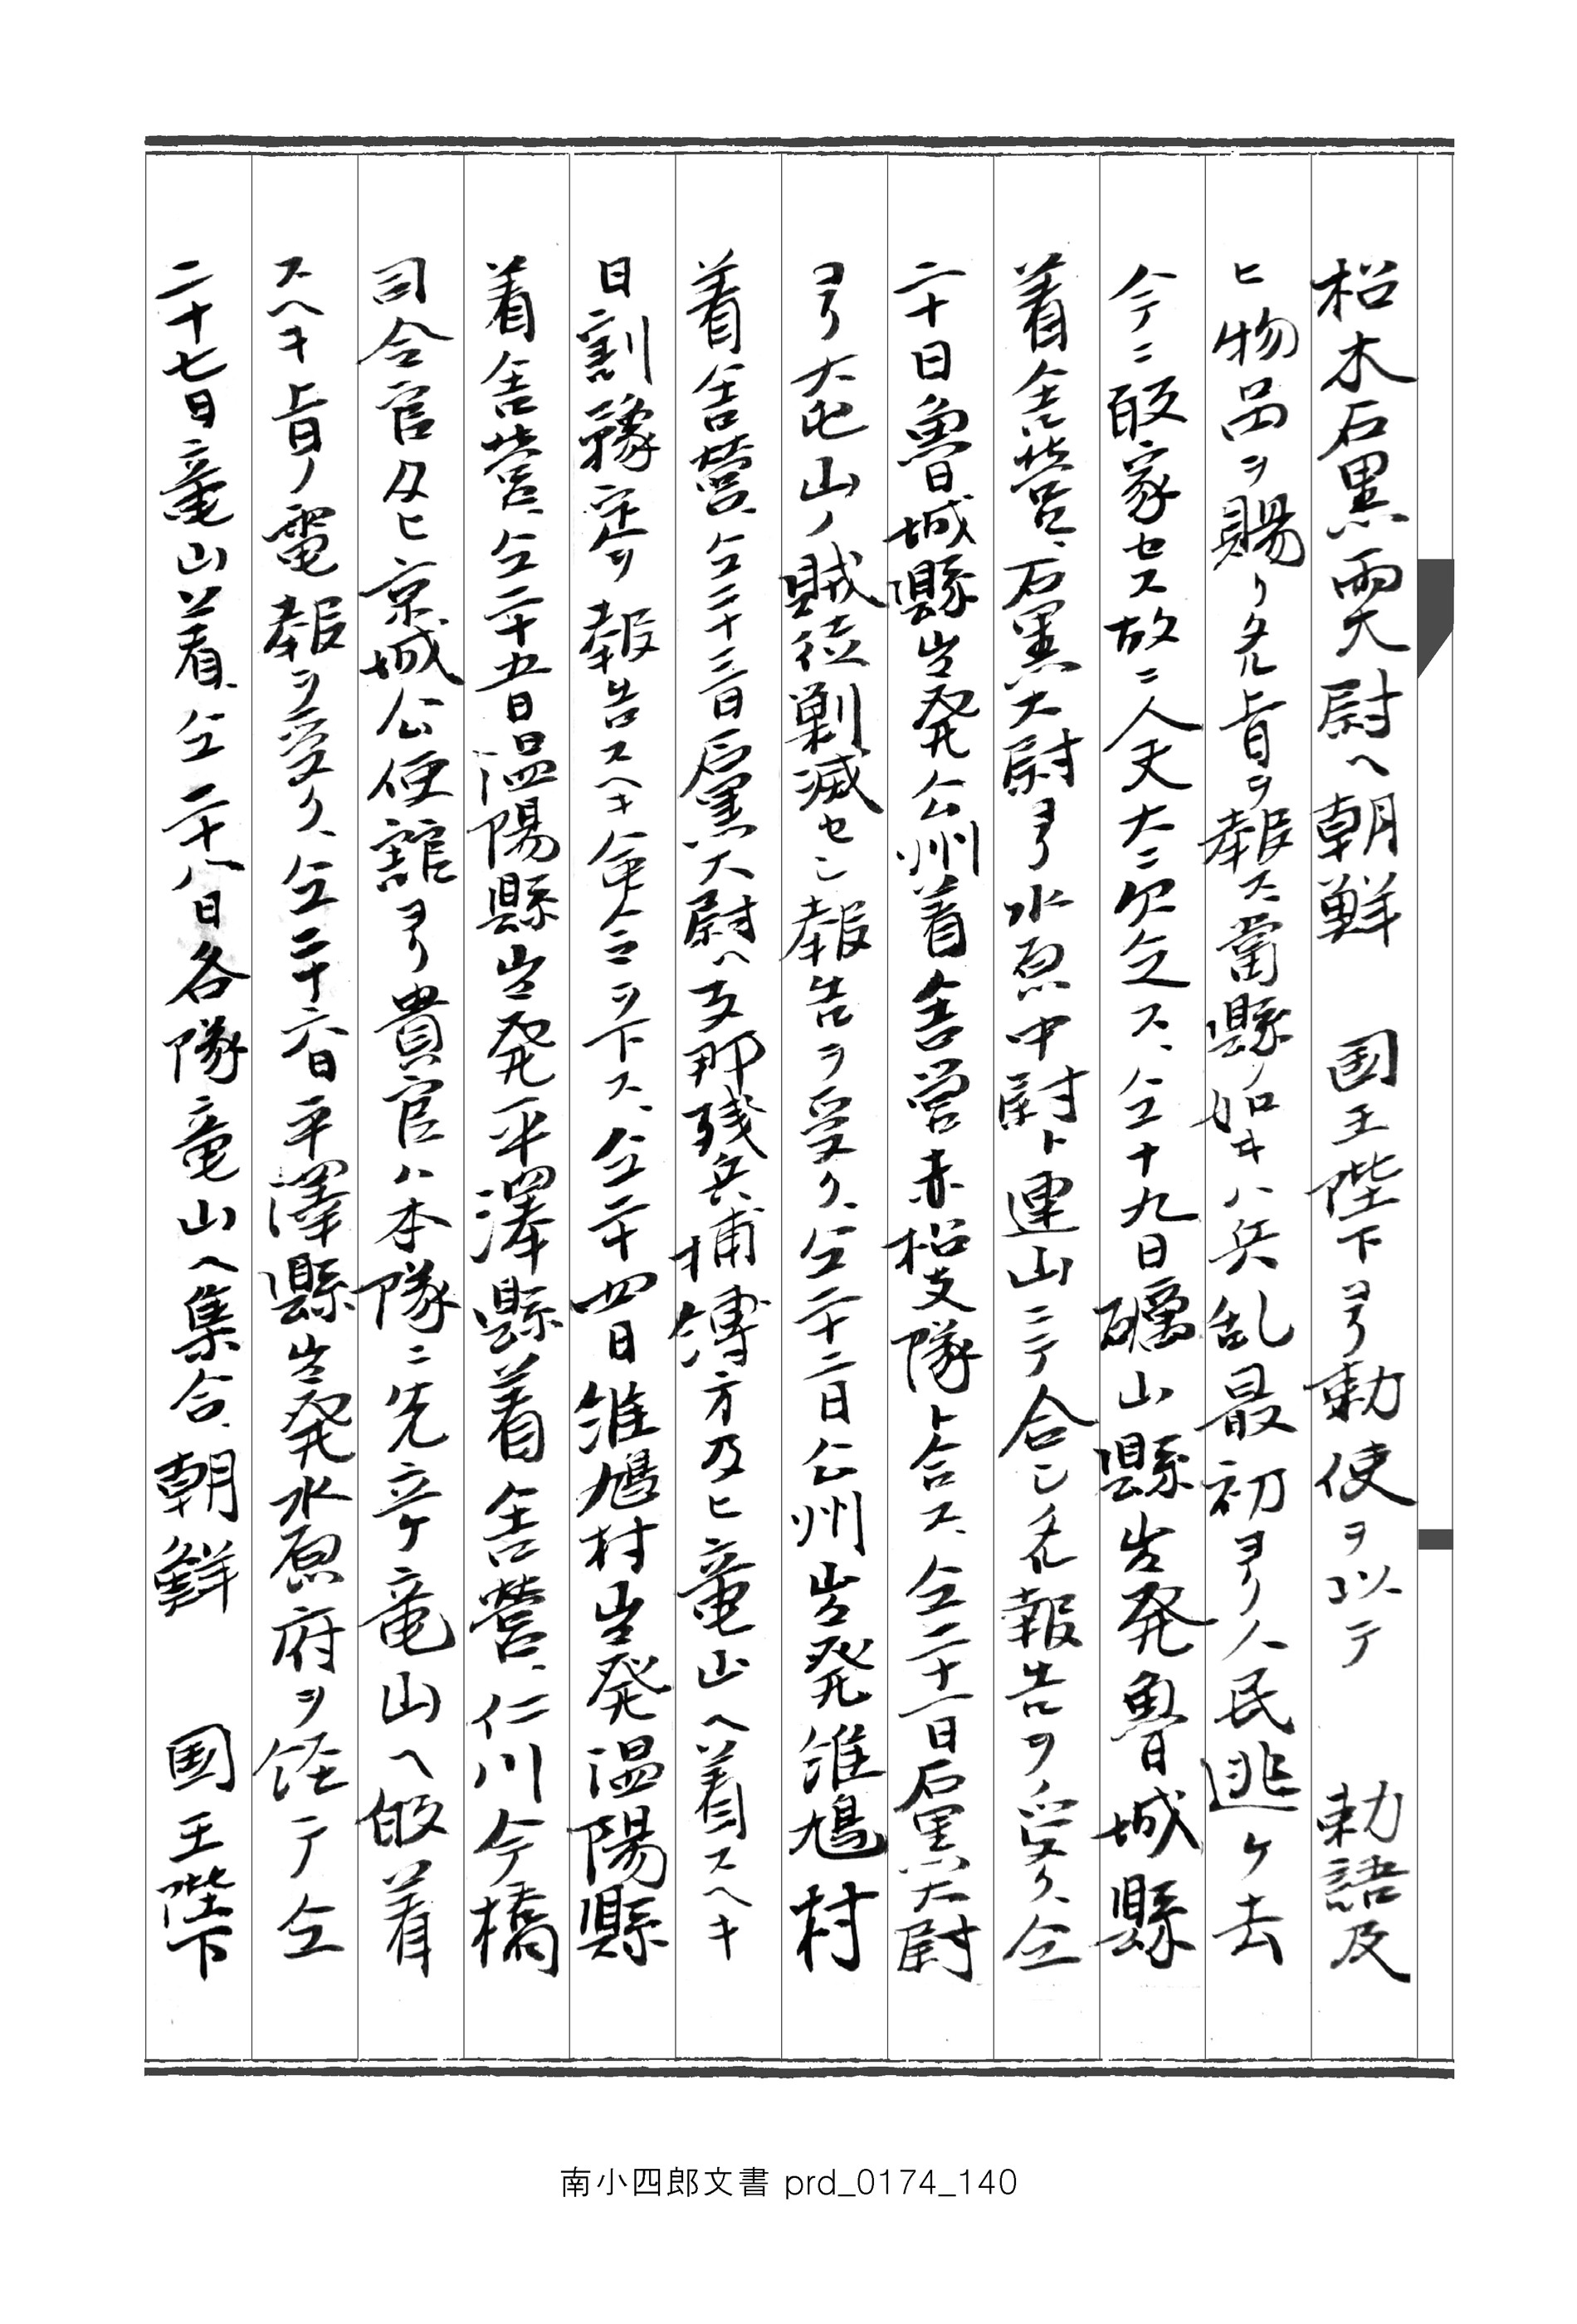 松木石黒両大尉ヘ朝鮮　国王陛下ヨリ勅使ヲ以テ　勅語及
ヒ物品ヲ賜リタル旨ヲ報ス、當縣ノ如キハ兵乱最初ヨリ人民逃ケ去
今ニ皈家セス故ニ人夫大ニ欠乏ス、仝十九日礪山縣出発魯城縣
着舎営、石黒大尉ヨリ水原中尉ト連山ニテ合シタル報告ヲ受ク、仝
二十日魯城縣出発公州着舎営赤松支隊ト合ス、仝二十一日石黒大尉
ヨリ大屯山ノ賊徒剿滅セシ報告ヲ受ク、仝二十二日公州出発維鳩村
着舎営、仝二十三日石黒大尉ヘ支那残兵捕縛方及ヒ竜山ヘ着スヘキ
日割豫定ヲ報告スヘキ命令ヲ下ス、仝二十四日維鳩村出発温陽縣
着舎営、仝二十五日温陽縣出発平澤縣着舎営、仁川今橋
司令官及ヒ京城公使舘ヨリ貴官ハ本隊ニ先立ケ竜山ヘ皈着
スヘキ旨ノ電報ヲ受ク、仝二十六日平澤縣出発水原府ヲ経テ仝
二十七日竜山着、仝二十八日各隊竜山ヘ集合、朝鮮　国王陛下
南小四郎文書 prd_0174_140